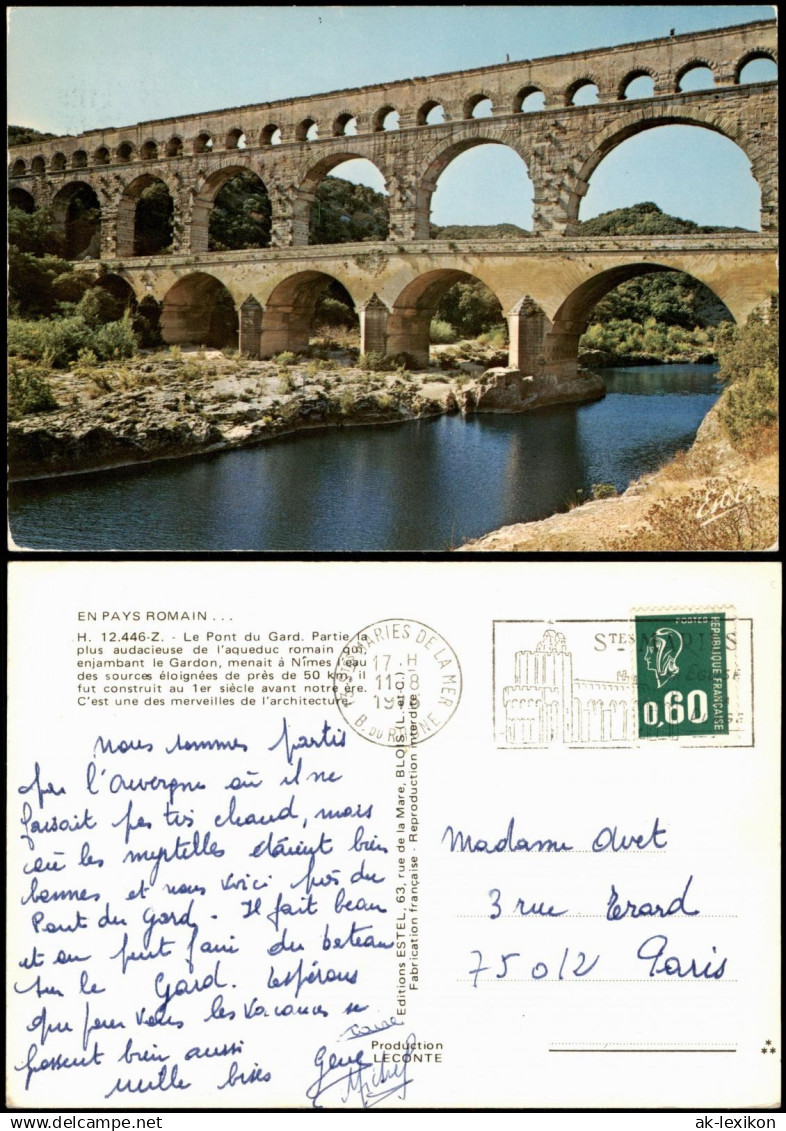 Estel
EN PAYS ROMAIN ...
H. 12.446-Z. - Le Pont du Gard. Partie la
plus audacieuse de l'aqueduc romain qui,
enjambant le Gardon, menait à Nîmes l'eau
des sources éloignées de près de 50 km, il
fut construit au 1er siècle avant notre ère.
C'est une des merveilles de l'architecture
STES MARIES DE LA MER
17 H
11-8
B. DU RHÔNE
STES MARIES
POSTES
REPUBLIQUE FRANÇAISE
0,60
nous sommes partis
par l'Auvergne où il ne
faisait pas très chaud, mais
où les myrtilles étaient bien
bonnes et nous voici près du
Pont du Gard. Il fait beau
et on peut faire du bateau
sur le Gard. Espérons
que pour vous les vacances se
passent bien aussi
mille bises
Editions ESTEL, 63, rue de la Mare, BLOIS (L.-et-C.)
Fabrication française - Reproduction interdite
Production
LECONTE
Madame
3 rue Erard
75012 Paris
ak-lexikon
www.delcampe.net